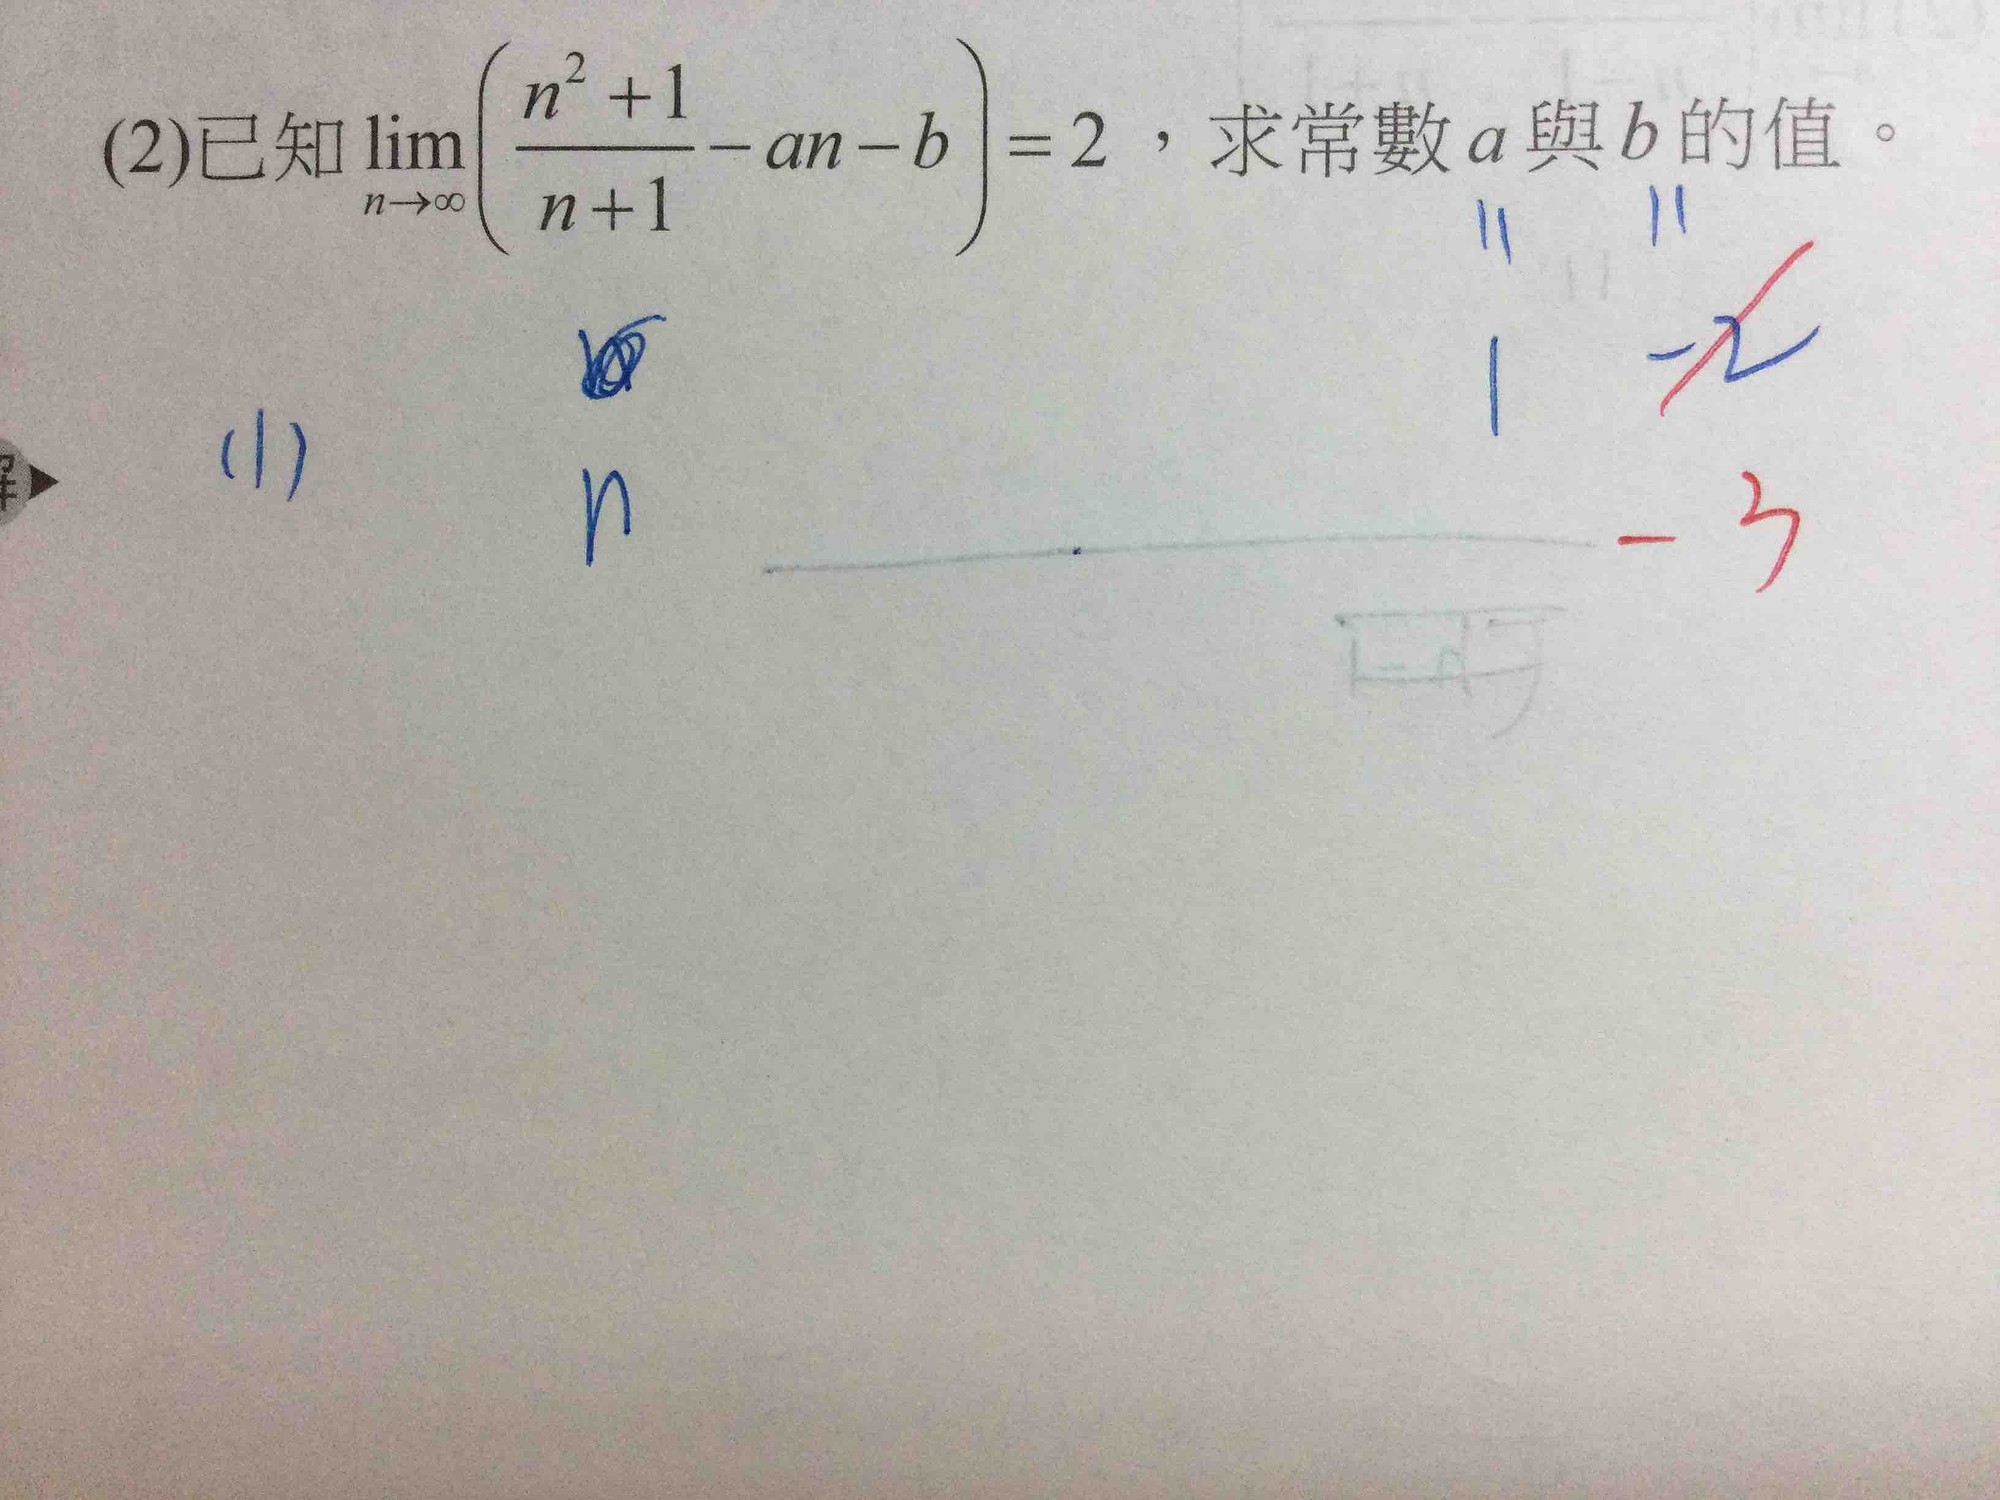 (2)已知 lim n→∞ ( (n²+1)/(n+1) − an − b ) = 2，求常數 a 與 b 的值。
= =
1 -2
(1)
n
-3
解